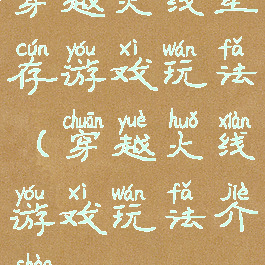 穿越火线生
cún yóu xì wán fǎ
存游戏玩法
chuān yuè huǒ xiàn
（穿越火线
yóu xì wán fǎ jiè
游戏玩法介
shào